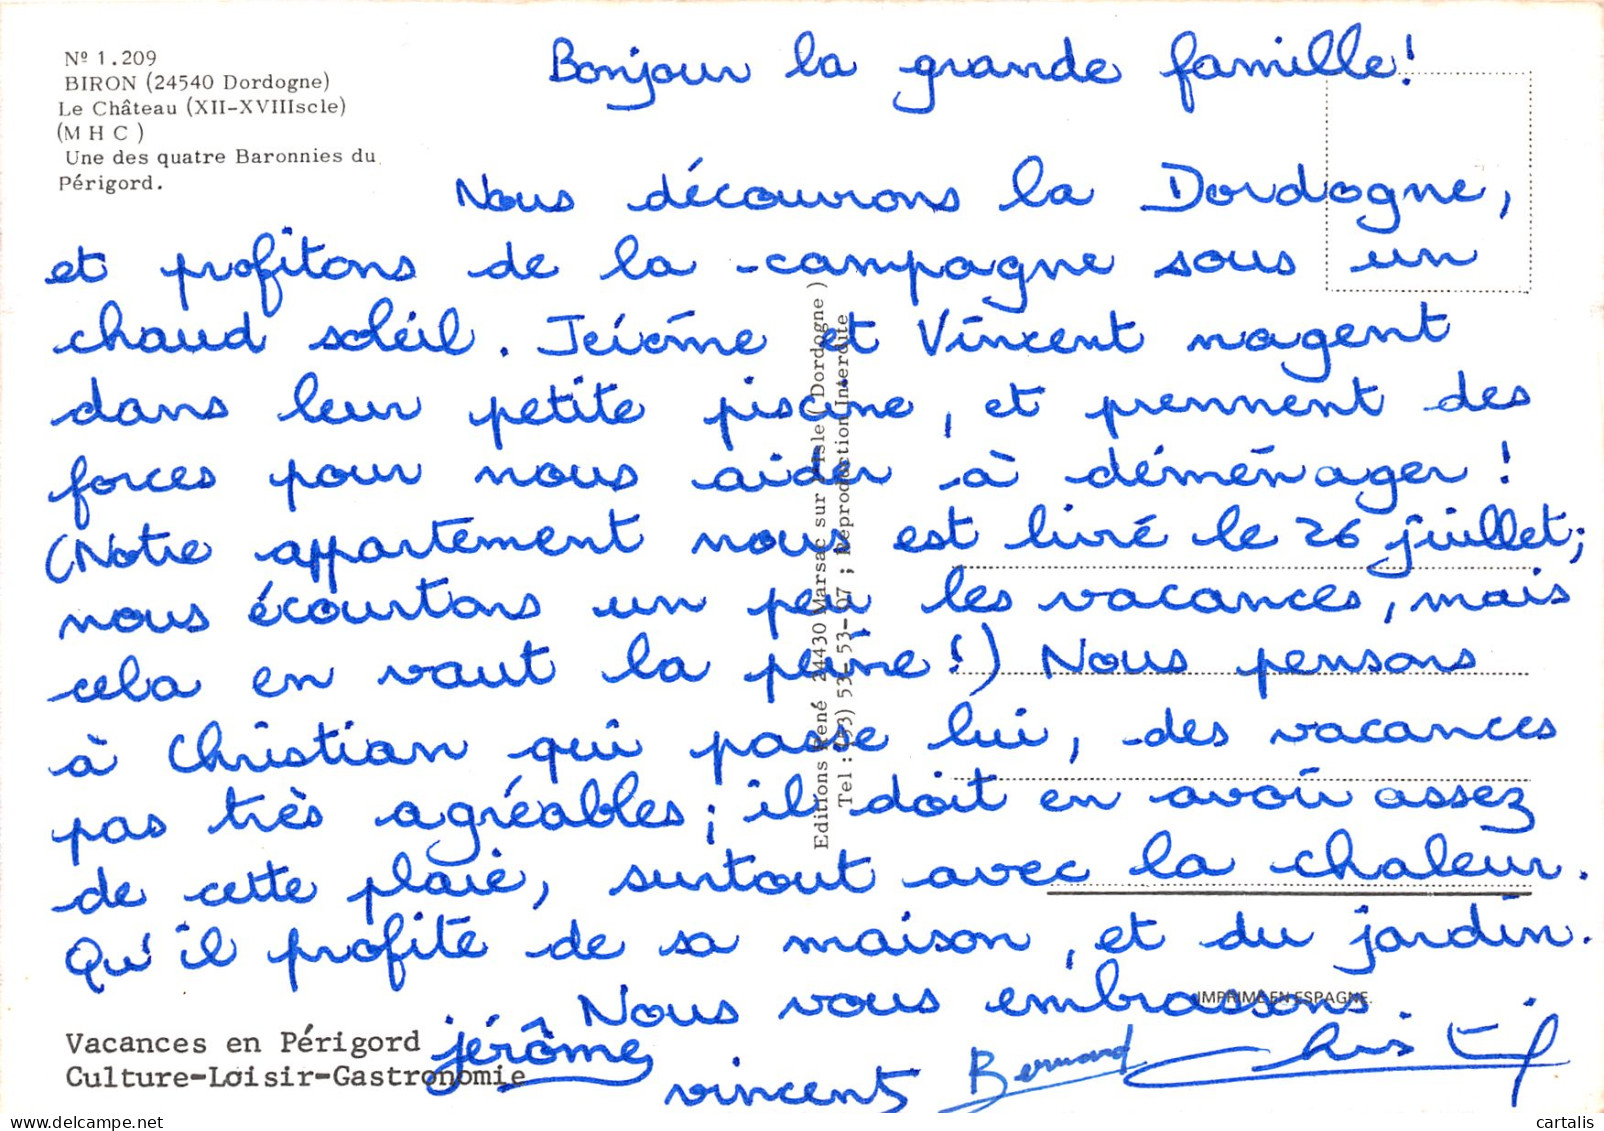 Nº 1.209
BIRON (24540 Dordogne)
Le Château (XII-XVIIIscle)
(M H C )
Une des quatre Baronnies du
Périgord.
Bonjour la grande famille !
Nous découvrons la Dordogne,
et profitons de la campagne sous un
chaud soleil. Jérôme et Vincent nagent
dans leur petite piscine, et prennent des
forces pour nous aider à déménager !
(Notre appartement nous est livré le 26 juillet ;
nous écourtons un peu les vacances, mais
cela en vaut la peine !) Nous pensons
à Christian qui passe lui, des vacances
pas très agréables ; il doit en avoir assez
de cette plaie, surtout avec la chaleur.
Qu'il profite de sa maison, et du jardin.
Nous vous embrassons
jérôme
vincent
Bernard
Editions René 24430 Marsac sur l'Isle ( Dordogne )
Tel : (53) 53-53-07 ; Reproduction Interdite
IMPRIME EN ESPAGNE.
Vacances en Périgord
Culture-Loisir-Gastronomie
delcampe.net
cartalis